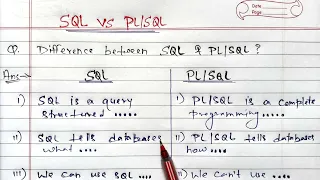 Date
Page
SQL vs PL/SQL
Q. Difference between SQL & PL/SQL ?
Ans→ SQL PL/SQL
i) SQL is a query i) PL/SQL is a complete
structured ..... programming.....
ii) SQL tells databases ii) PL/SQL tells databases
what .... how ....
iii) We can use SQL .... iii) We can't use ....